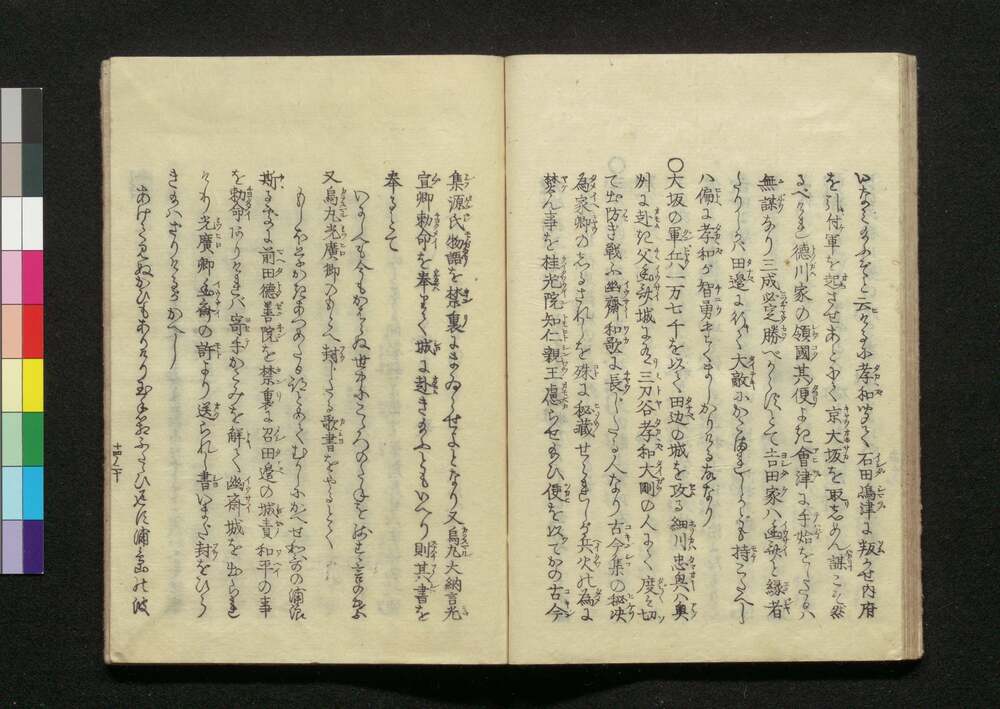 と云々孝和笑て石田嶋津に叛かせ内府
を引付軍を起させあとにて京大坂を取しめん謀こそ然
るべけれ徳川家の領國其便よき會津に手始をしたるハ
無謀なり三成必定勝べからずとて吉田家ハ幽斎と縁者
たりしかバ田邉に行て大敵にかこまれしかども持こたへし
ハ偏に孝和が智勇すぐれましかりける故なり
〇大坂の軍兵ハ一万七千を以て田边の城を攻る細川忠奥ハ奥
州に赴き父幽斎城に有三刀谷孝和大剛の人にて度々切
て出防ぎ戦ふ幽斎和歌に長じたる人なり古今集の秘决
為家卿のしるされしを殊に秘蔵せられしが兵火の為に
焚ん事を桂光院知仁親王慮らせ玉ひ使を以てかの古今
集源氏物語を禁裏にまゐらせよとなり又烏丸大納言光
宣卿勅命を奉りて城に赴き玉ふともいへり則其書を
奉るとて
いにしへも今もかはらぬ世中にこゝろのたねをのこす言の葉
又烏丸光廣卿のもとへ封じたる歌書をやるとて
もしほ草かきあつめたる跡とめてむかしにかへせわかの浦浪
斯る处に前田徳善院を禁裏に召田邉の城責和平の事
を勅命ありければ寄手かこみを解て幽斎城を出られ
けり光廣卿幽斎の許より送られし書いまだ封をひらか
ざりけるがかへし
あけて見ぬかひもありけり玉手箱ふたゝびかへす浦島の波
十四ノ下